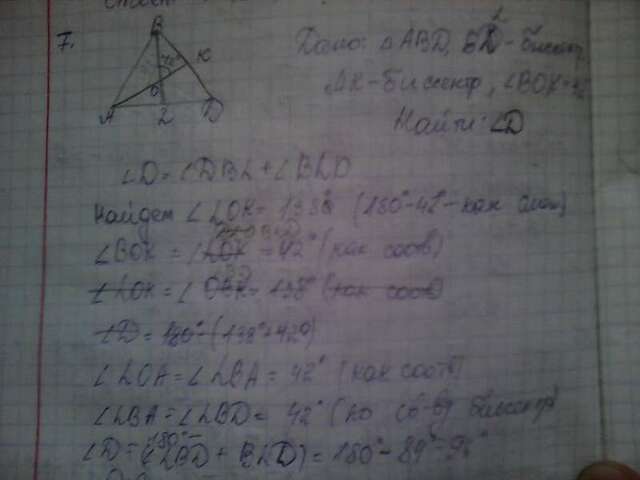 7.
B
K
42°
O
A
L
D
Дано: △ABD, BL - биссектр
AK - биссектр, ∠BOK = 42
Найти: ∠D
∠D = ∠DBL + ∠BLD
Найдем ∠LOK = 138° (180° - 42° - как смеж)
∠BOK = = 42° (как соотв)
∠LOK = 138° (как соотв)
∠D = 180° - (138° + 42°)
∠LOA = ∠LBA = 42° (как соотв)
∠LBA = ∠LBD = 42° (по св-ву биссектр
∠D = 180° - (∠LBD + BLD) = 180° -